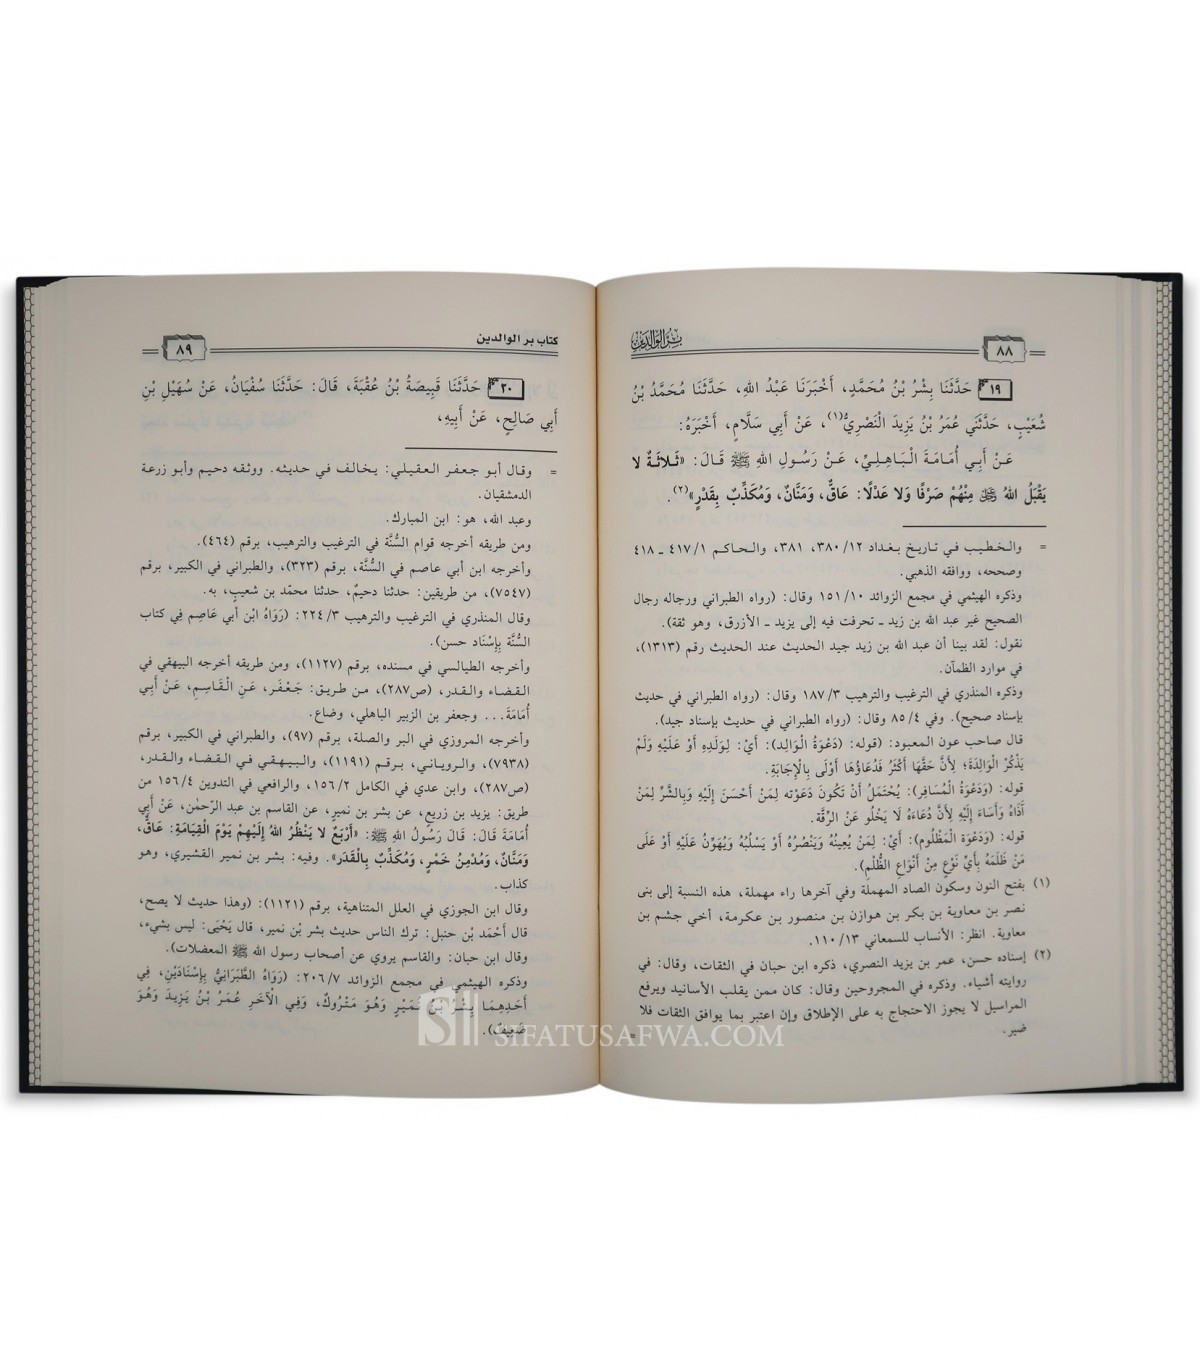 ٨٨
بر الوالدين
١٩ حَدَّثَنَا بِشْرُ بْنُ مُحَمَّدٍ، أَخْبَرَنَا عَبْدُ اللهِ، حَدَّثَنَا مُحَمَّدُ بْنُ
شُعَيْبٍ، حَدَّثَنِي عُمَرُ بْنُ يَزِيدَ النَّصْرِيُّ(١)، عَنْ أَبِي سَلَّامٍ، أَخْبَرَهُ:
عَنْ أَبِي أُمَامَةَ الْبَاهِلِيِّ، عَنْ رَسُولِ اللهِ ﷺ قَالَ: «ثَلَاثَةٌ لا
يَقْبَلُ اللهُ ﷻ مِنْهُمْ صَرْفًا وَلا عَدْلًا: عَاقٌّ، وَمَنَّانٌ، وَمُكَذِّبٌ بِقَدْرٍ»(٢).
= والخطيب في تاريخ بغداد ٣٨٠/١٢، ٣٨١، والحاكم ٤١٧/١ ـ ٤١٨
وصححه، ووافقه الذهبي.
وذكره الهيثمي في مجمع الزوائد ١٥١/١٠ وقال: (رواه الطبراني ورجاله رجال
الصحيح غير عبد الله بن زيد ـ تحرفت فيه إلى يزيد ـ الأزرق، وهو ثقة).
نقول: لقد بينا أن عبد الله بن زيد جيد الحديث عند الحديث رقم (١٣١٣)،
في موارد الظمآن.
وذكره المنذري في الترغيب والترهيب ١٨٧/٣ وقال: (رواه الطبراني في حديث
بإسناد صحيح). وفي ٨٥/٤ وقال: (رواه الطبراني في حديث بإسناد جيد).
قال صاحب عون المعبود: (قوله: (دَعْوَةُ الْوَالِد): أَيْ: لِوَلَدِهِ أَوْ عَلَيْهِ وَلَمْ
يَذْكُرْ الْوَالِدَةَ؛ لِأَنَّ حَقَّهَا أَكْثَرُ فَدُعَاؤُهَا أَوْلَى بِالْإِجَابَةِ.
قوله: (وَدَعْوَةُ الْمُسَافِرِ): يُحْتَمَلُ أَنْ تَكُونَ دَعْوَته لِمَنْ أَحْسَنَ إِلَيْهِ وَبِالشَّرِّ لِمَنْ
آذَاهُ وَأَسَاءَ إِلَيْهِ لِأَنَّ دُعَاءَهُ لَا يَخْلُو عَنْ الرِّقَّة.
قوله: (وَدَعْوَة الْمَظْلُوم): أَيْ: لِمَنْ يُعِينُهُ وَيَنْصُرُهُ أَوْ يَسْلُبُهُ وَيُهَوِّنُ عَلَيْهِ أَوْ عَلَى
مَنْ ظَلَمَهُ بِأَيِّ نَوْعٍ مِنْ أَنْوَاعِ الظُّلْمِ).
(١) بفتح النون وسكون الصاد المهملة وفي آخرها راء مهملة، هذه النسبة إلى بنى
نصر بن معاوية بن بكر بن هوازن بن منصور بن عكرمة، أخي جشم بن
معاوية. انظر: الأنساب للسمعاني ١١٠/١٣.
(٢) إسناده حسن، عمر بن يزيد النصري، ذكره ابن حبان في الثقات، وقال: في
روايته أشياء. وذكره في المجروحين وقال: كان ممن يقلب الأسانيد ويرفع
المراسيل لا يجوز الاحتجاج به على الإطلاق وإن اعتبر بما يوافق الثقات فلا
ضير. =
كتاب بر الوالدين
٨٩
٢٠ حَدَّثَنَا قَبِيصَةُ بْنُ عُقْبَةَ، قَالَ: حَدَّثَنَا سُفْيَانُ، عَنْ سُهَيْلِ بْنِ
أَبِي صَالِحٍ، عَنْ أَبِيهِ،
= وقال أبو جعفر العقيلي: يخالف في حديثه. ووثقه دحيم وأبو زرعة
الدمشقيان.
وعبد الله، هو: ابن المبارك.
ومن طريقه أخرجه قوام السُّنَّة في الترغيب والترهيب، برقم (٤٦٤).
وأخرجه ابن أبي عاصم في السُّنَّة، برقم (٣٢٣)، والطبراني في الكبير، برقم
(٧٥٤٧)، من طريقين: حدثنا دحيمٌ، حدثنا محمّد بن شعيبٍ، به.
وقال المنذري في الترغيب والترهيب ٢٢٤/٣: (رَوَاهُ ابْن أبي عَاصِم فِي كتاب
السُّنَّة بِإِسْنَاد حسن).
وأخرجه الطيالسي في مسنده، برقم (١١٢٧)، ومن طريقه أخرجه البيهقي في
القضاء والقدر، (ص٢٨٧)، من طريق: جَعْفَر، عَنِ الْقَاسِمِ، عَنْ أَبِي
أُمَامَةَ... وجعفر بن الزبير الباهلي، وضاع.
وأخرجه المروزي في البر والصلة، برقم (٩٧)، والطبراني في الكبير، برقم
(٧٩٣٨)، والروياني، برقم (١١٩١)، والبيهقي في القضاء والقدر،
(ص٢٨٧)، وابن عدي في الكامل ١٥٦/٢، والرافعي في التدوين ١٥٦/٤ من
طريق: يزيد بن زريع، عن بشر بن نمير، عن القاسم بن عبد الرّحمٰن، عَنْ أَبِي
أُمَامَةَ قَالَ: قَالَ رَسُولُ اللهِ ﷺ: «أَرْبَعٌ لا يَنْظُرُ اللهُ إِلَيْهِمْ يَوْمَ الْقِيَامَةِ: عَاقٌ،
وَمَنَّانٌ، وَمُدْمِنُ خَمْرٍ، وَمُكَذِّبٌ بِالْقَدَرِ». وفيه: بشر بن نمير القشيري، وهو
كذاب.
وقال ابن الجوزي في العلل المتناهية، برقم (١١٢١): (وهذا حديث لا يصح،
قال أَحْمَد بْن حنبل: ترك الناس حديث بشر بْن نمير، قال يَحْيَى: ليس بشيء،
وقال ابن حبان: والقاسم يروي عن أصحاب رسول الله ﷺ المعضلات).
وذكره الهيثمي في مجمع الزوائد ٢٠٦/٧: (رَوَاهُ الطَّبَرَانِيُّ بِإِسْنَادَيْنِ، فِي
أَحَدِهِمَا بِشْرُ بْنُ نُمَيْرٍ وَهُوَ مَتْرُوكٌ، وَفِي الْآخَرِ عُمَرُ بْنُ يَزِيدَ وَهُوَ
ضَعِيفٌ).
SIFATUSAFWA.COM